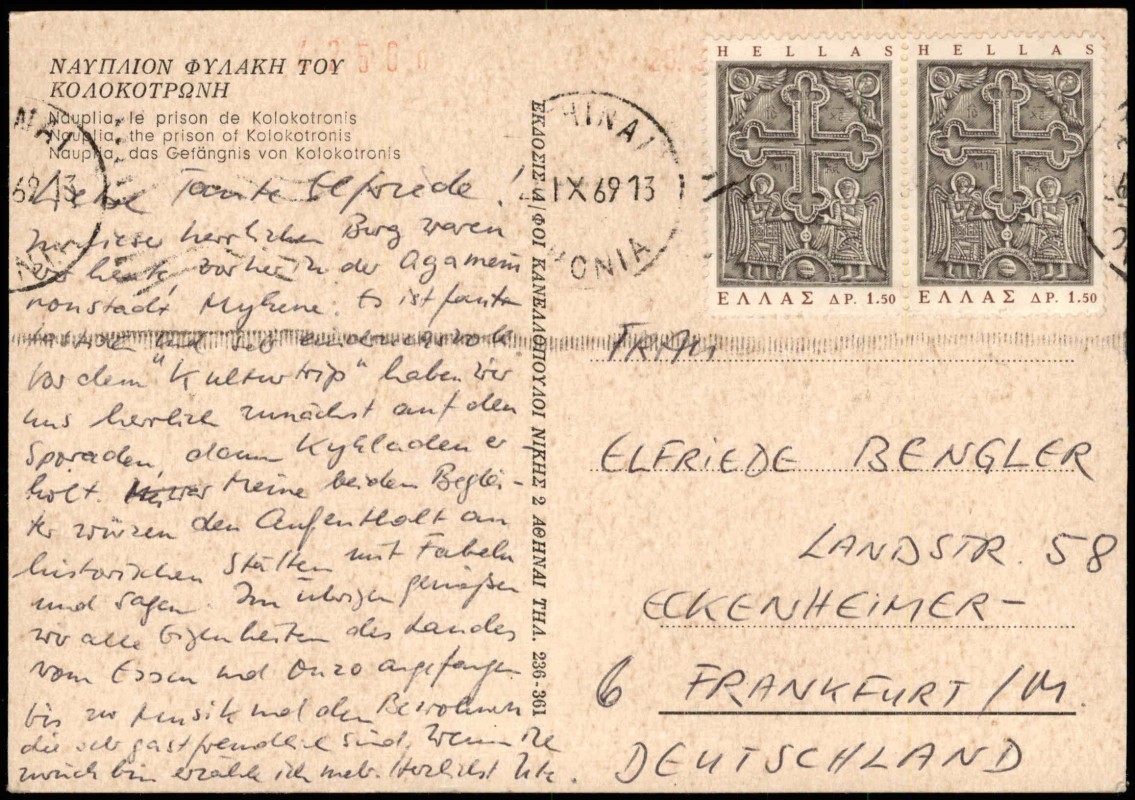 ΝΑΥΠΛΙΟΝ ΦΥΛΑΚΗ ΤΟΥ
ΚΟΛΟΚΟΤΡΩΝΗ
Nauplia, le prison de Kolokotronis
Nauplia, the prison of Kolokotronis
Nauplia, das Gefängnis von Kolokotronis
Liebe Tante Elfriede!
In dieser herrlichen Burg waren
wir heute, vorher in der Agamem
nonstadt Mykene. Es ist fanta
stisch und sehr eindrucksvoll
Vor dem "Kulturtrip" haben wir
uns herrlich zunächst auf den
Sporaden, dann Kykladen er
holt. Meine beiden Beglei-
ter würzen den Aufenthalt an
historischen Stätten mit Fabeln
und Sagen. Im übrigen genießen
wir alle Eigenheiten des Landes
vom Essen und Ouzo angefangen
bis zur Musik und den Bewohnern
die sehr gastfreundlich sind. Wenn ich
zurück bin erzähle ich mehr. Herzlichst
ΕΚΔΟΣΙΣ ΑΦΟΙ ΚΑΝΕΛΛΟΠΟΥΛΟΙ ΝΙΚΗΣ 2 ΑΘΗΝΑΙ ΤΗΛ. 236-361
HELLAS
ΕΛΛΑΣ ΔΡ. 1.50
HELLAS
ΕΛΛΑΣ ΔΡ. 1.50
ΗΙΝΑΙ
IX 69 13
ΟΝΙΑ
ΝΑΙ
69 13
FRAU
ELFRIEDE BENGLER
LANDSTR. 58
ECKENHEIMER-
6 FRANKFURT/M.
DEUTSCHLAND